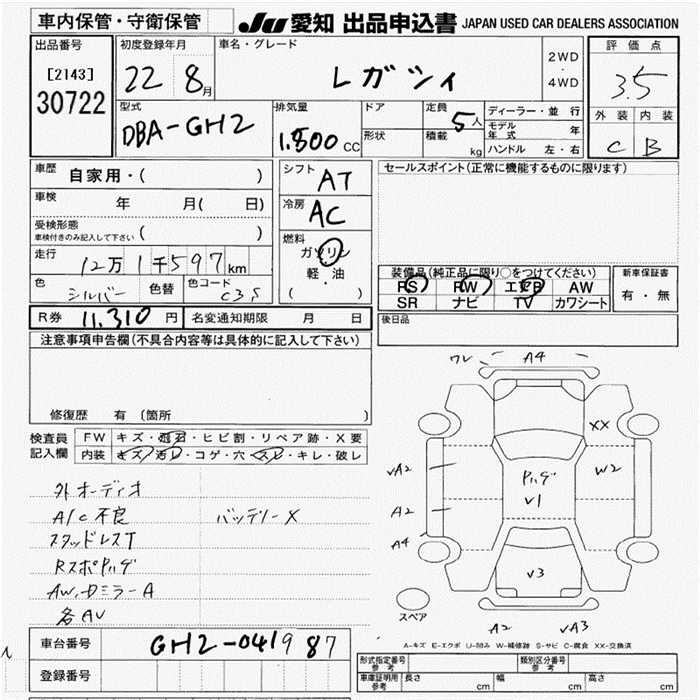 車内保管・守衛保管
JU 愛知 出品申込書 JAPAN USED CAR DEALERS ASSOCIATION
出品番号
[2143]
30722
初度登録年月
22 8月
車名・グレード
レガシィ
2WD
・
4WD
評価点
3.5
外装 内装
C B
型式
DBA-GH2
排気量
1.500 CC
ドア
形状
定員
5人
積載
kg
ディーラー・並行
モデル年式 年
ハンドル 左・右
車歴
自家用・( )
車検
年 月( 日)
受検形態
車検付きのみ記入して下さい ( )
走行
12万1千597km
色
シルバー
色替
色コード
C3S
シフト
AT
冷房
AC
燃料
ガソリン
軽・油
( )
セールスポイント(正常に機能するものに限ります)
装備品(純正品に限り○をつけてください)
PS PW エアB AW
SR ナビ TV カワシート
新車保証書
有・無
R券 11,310 円 名変通知期限 月 日
後日品
注意事項申告欄(不具合内容等は具体的に記入して下さい)
修復歴 有(箇所
検査員
記入欄
FW キズ・飛石・ヒビ割・リペア跡・X要
内装 キズ・汚レ・コゲ・穴・スレ・キレ・破レ
外オーディオ
A/C不良 バッテリーX
スタッドレスT
RスポPハゲ
AW,Dミラー A
各AV
ワレ A4
XX
vA2
W2
Pハゲ
v1
A2
A4
v3
スペア
A2 vA3
A-キズ E-エクボ U-凹み W-補修跡 S-サビ C-腐食 XX-交換済
車台番号 GH2-041987
登録番号
型式指定番号
参考
類別区分番号
参考
車庫証明用
参考
長さ cm 幅 cm 高さ cm